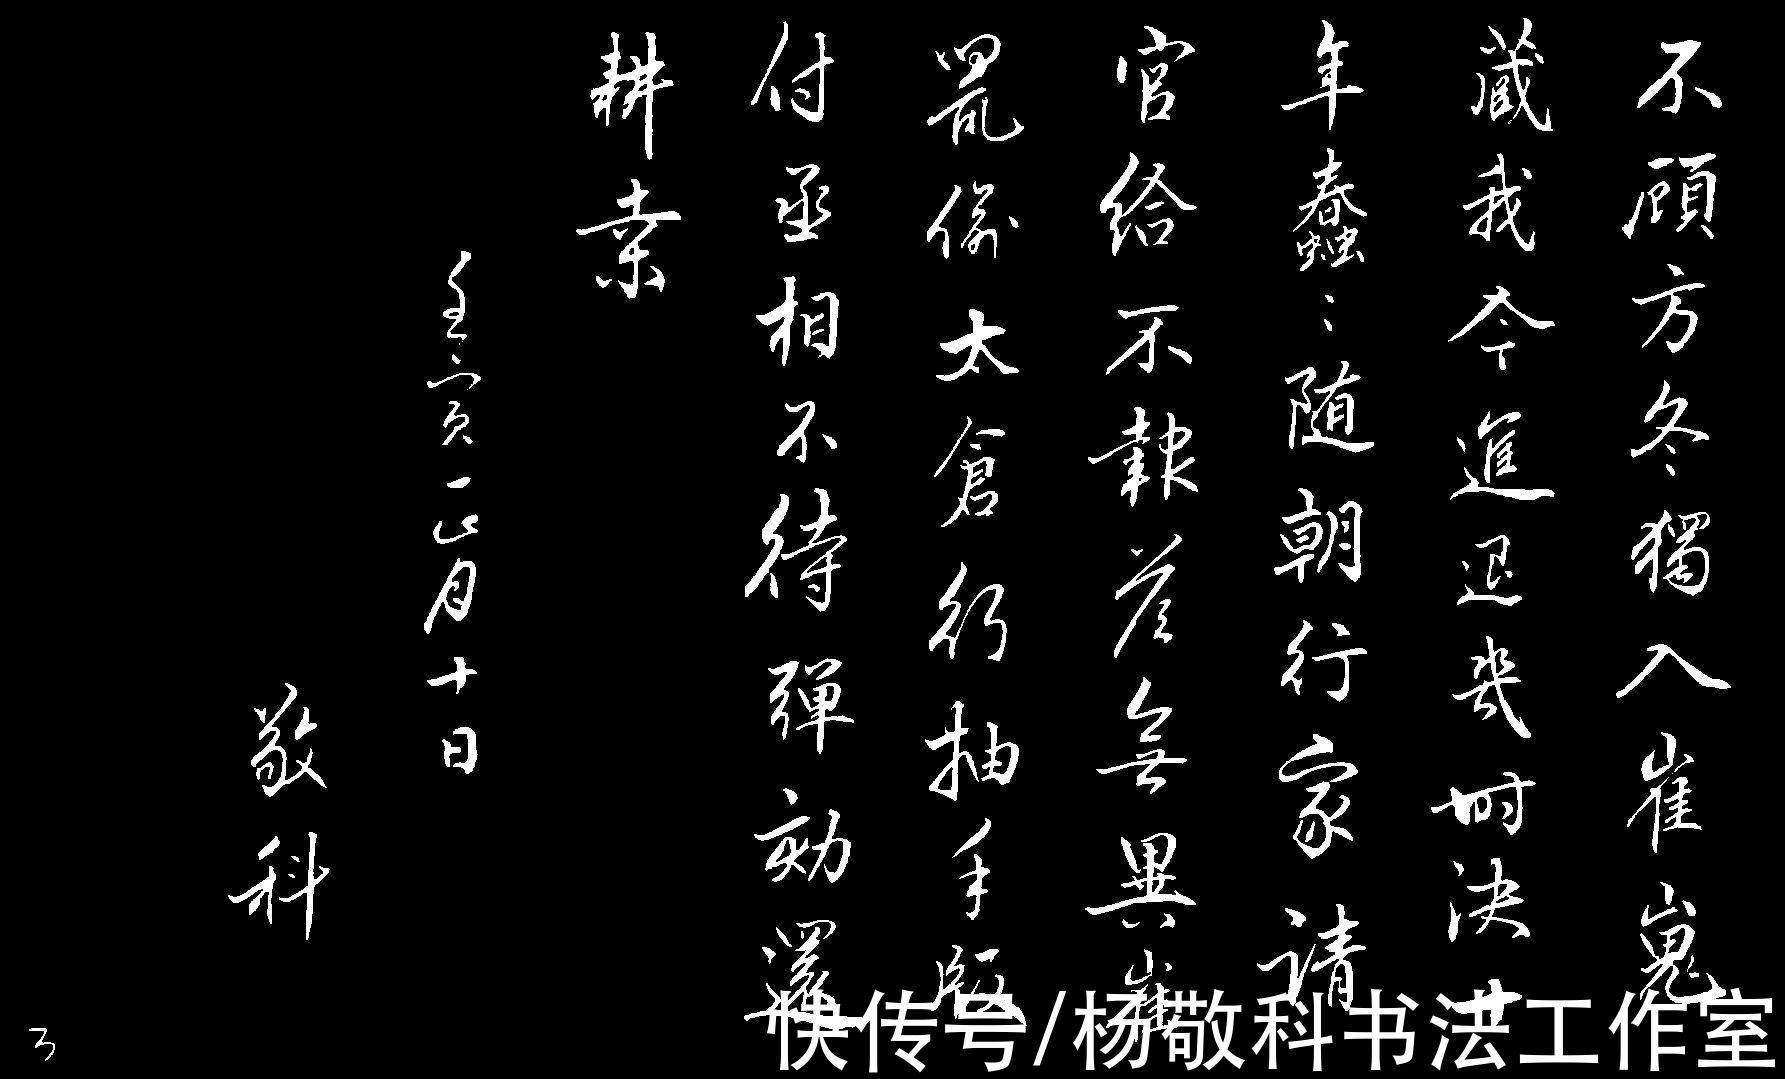 不顧方冬獨入崔嵬
藏我今進退幾時決十
年蠢〻隨朝行家請
官給不報答無異雀
鼠偷太倉行抽手版
付丞相不待彈劾還
耕桑
壬寅正月十日
敬科
快传号/杨敬科书法工作室